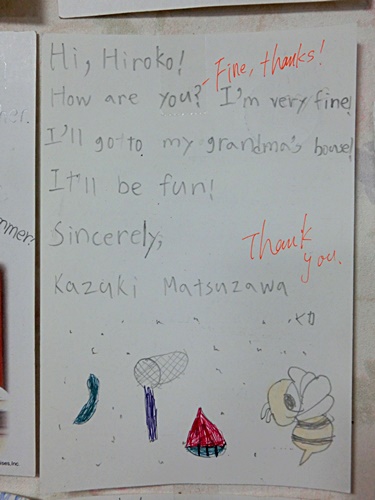 Hi, Hiroko!
Fine, thanks!
How are you? I'm very fine!
I'll go to my grandma's house!
It'll be fun!
Sincerely,
Thank
you.
Kazuki Matsuzawa